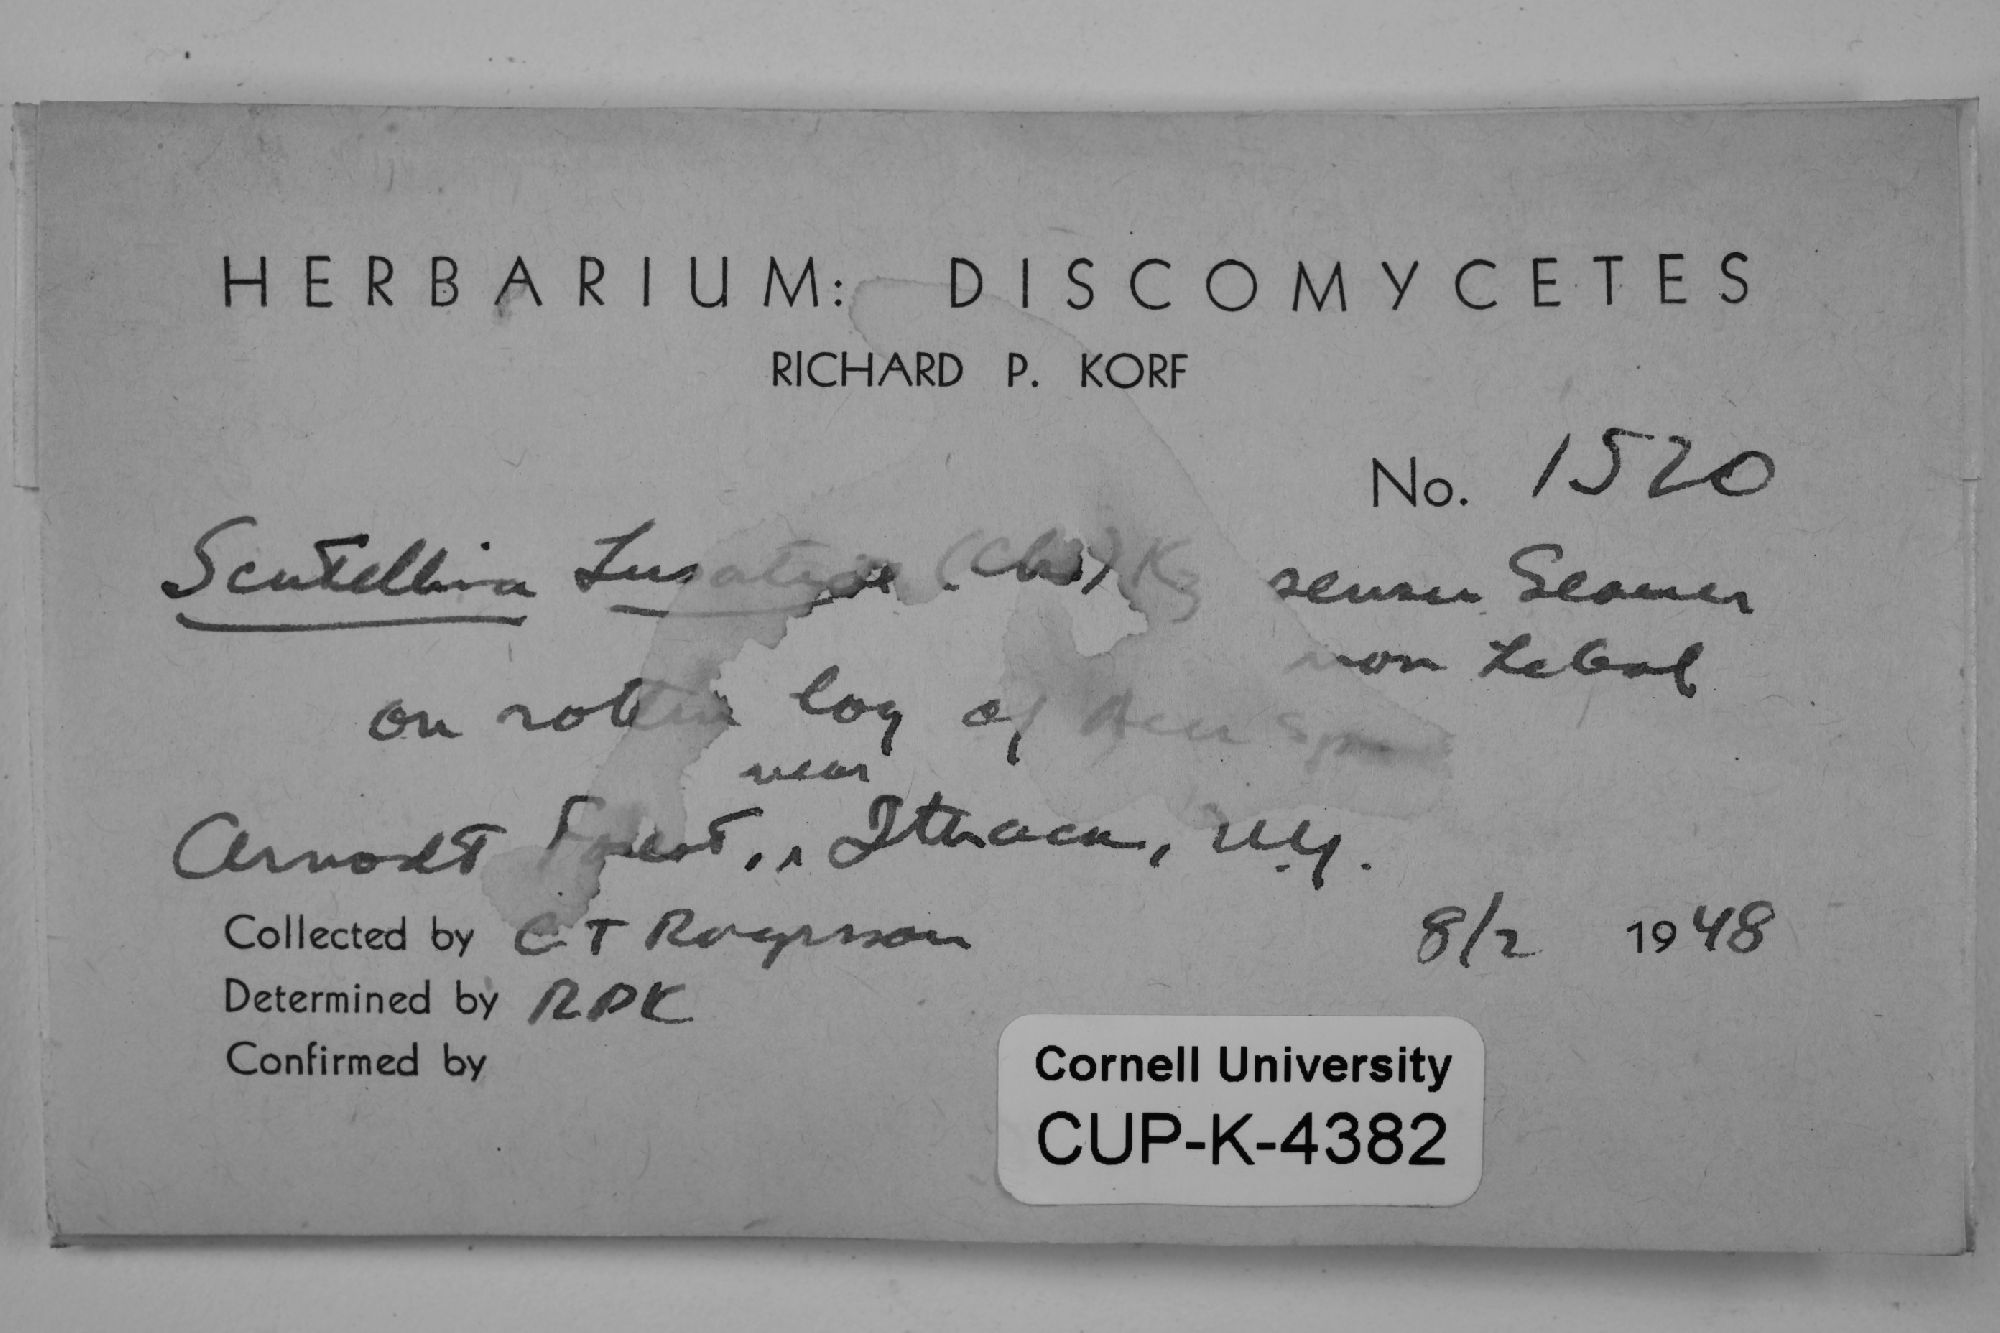 HERBARIUM: DISCOMYCETES
RICHARD P. KORF
No. 1520
Scutellinia Lusatiae (Cke) K. sensu Seaver
non LeGal
on rotten log of Acer
near
Arnodt Forest, Ithaca, N.Y.
Collected by C T Rogerson 8/2 1948
Determined by RPK
Confirmed by
Cornell University
CUP-K-4382